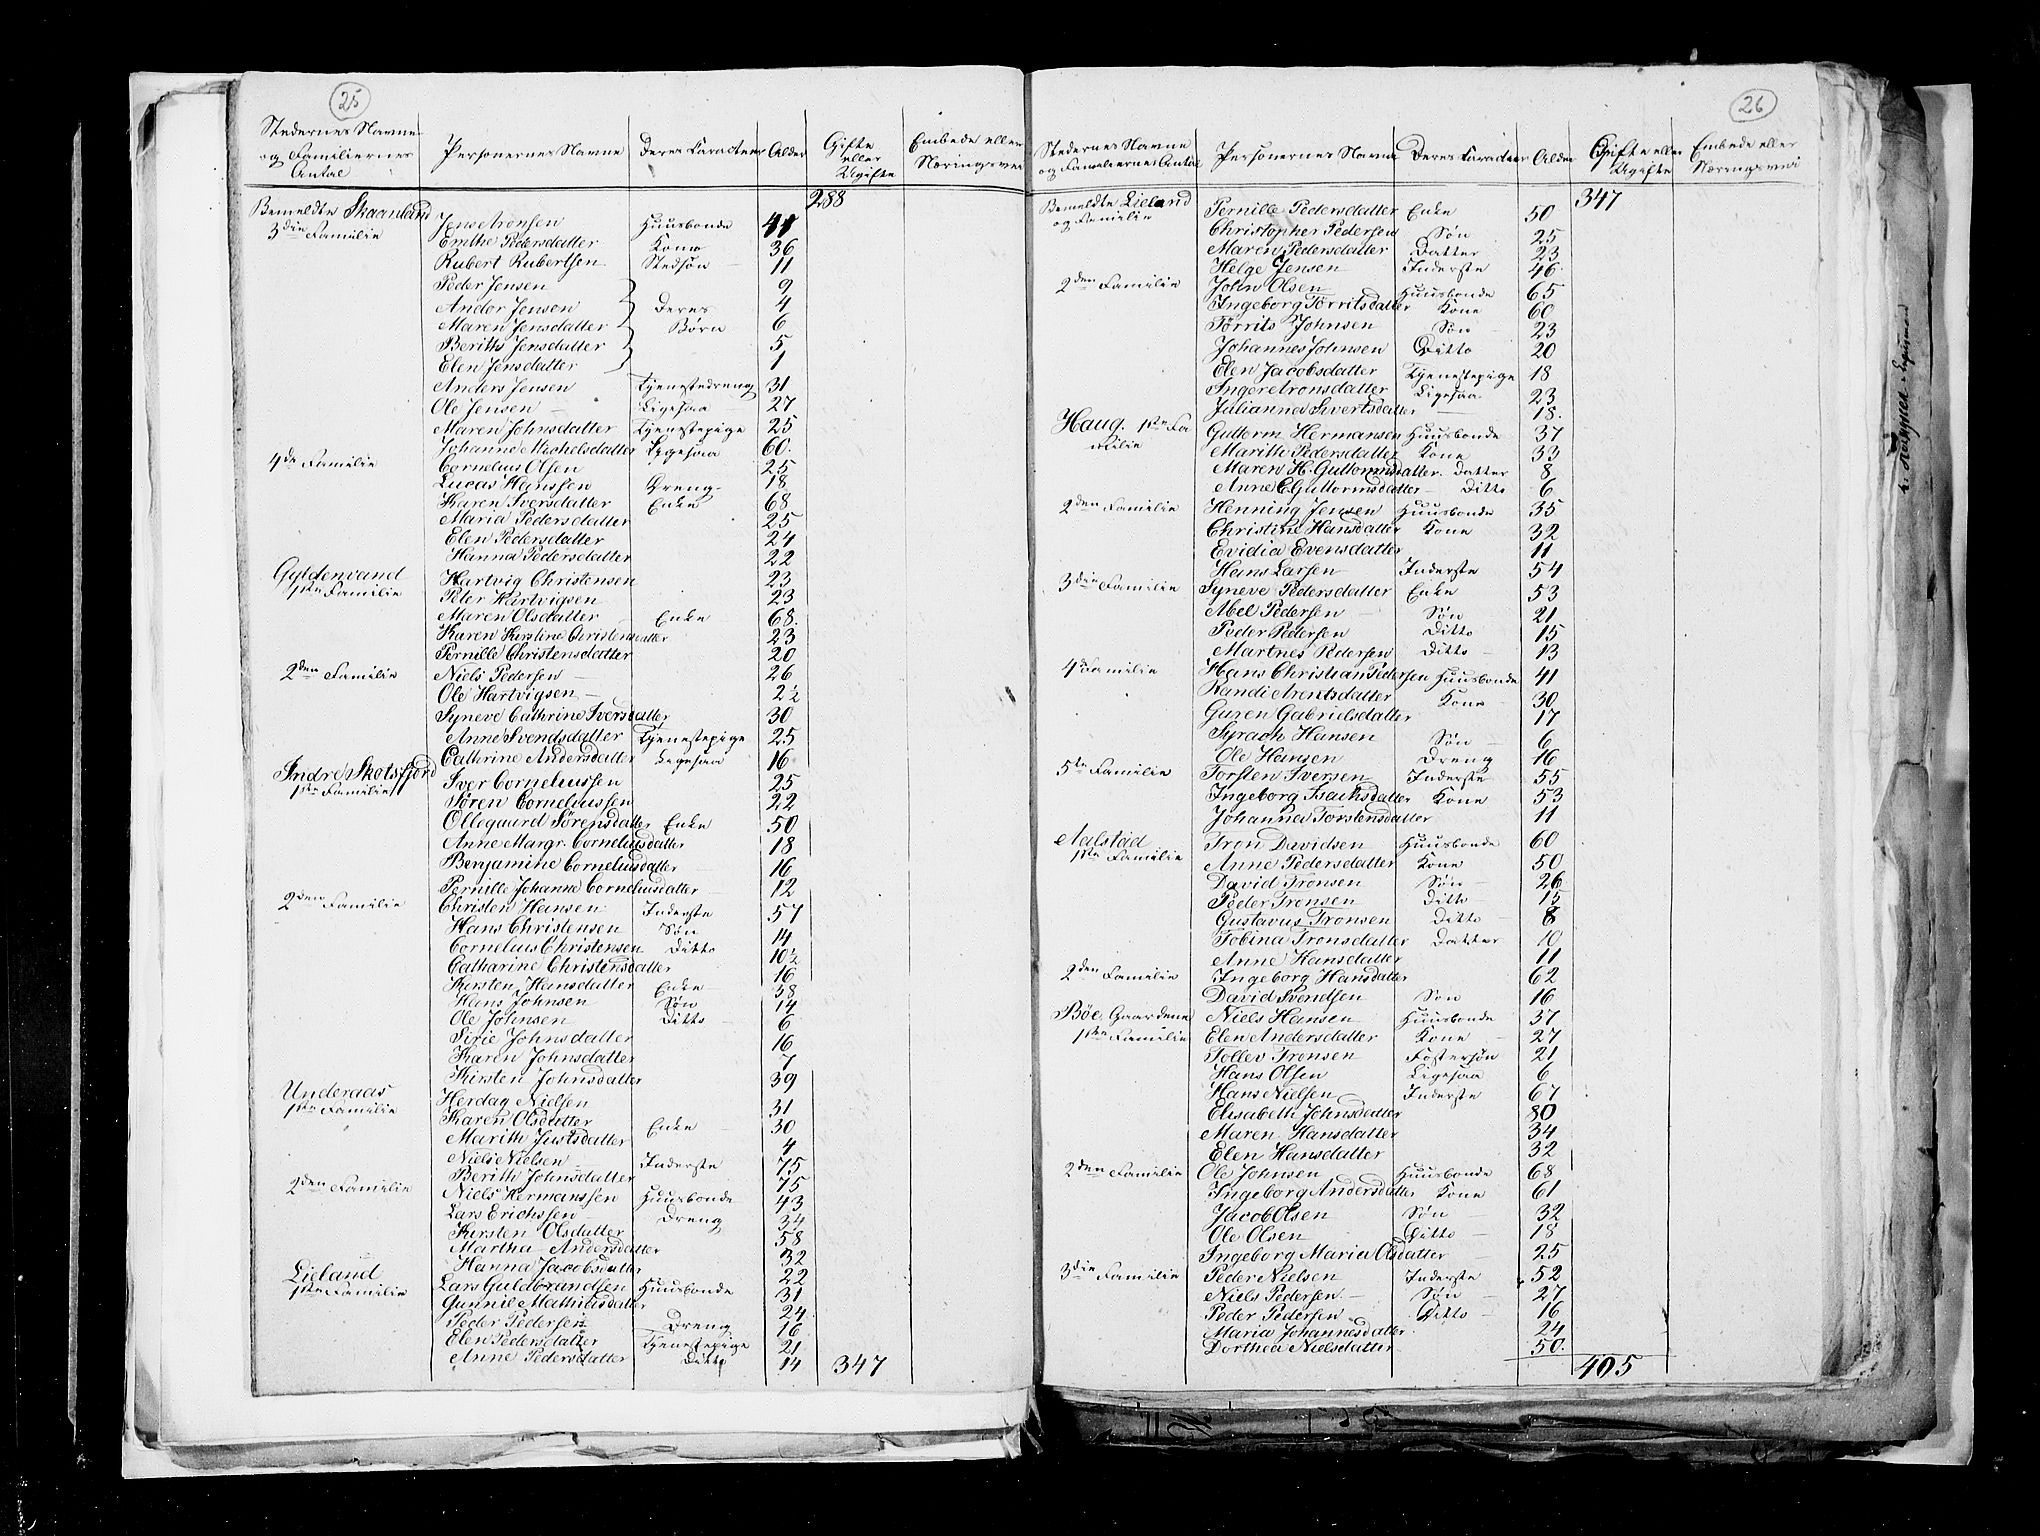 25
Stedernes Navne og Familiernes Antal | Personernes Navne | Deres Caracteer | Alder | Gifte eller Ugifte | Embede eller Næringsvei
288
Bemeldte Skaanland
3die Familie Jens Aronsen Huusbonde 41
Emthe Pedersdatter Kone 36
Rubert Rubertsen Stedsøn 11
Peder Jensen 9
Andor Jensen Deres 4
Maren Jensdatter Børn 6
Berith Jensdatter 5
Elen Jensdatter 1
Anders Jensen Tjenestedreng 31
Ole Jensen Ligesaa 27
Maren Johnsdatter Tjenestepige 25
Johanne Michelsdatter Ligesaa 60
4de Familie Cornelius Olsen 25
Lucas Hanssen Dreng 18
Karen Iversdatter Enke 68
Maria Pedersdatter 25
Elen Pedersdatter 24
Hanna Pedersdatter 22
Gyldenvand Hartvig Christensen 23
1ste Familie Peter Hartvigsen 23
Maren Olsdatter Enke 68
Karen Kirstine Christensdatter 23
Pernille Christensdatter 20
2den Familie Niels Pedersen 26
Ole Hartvigsen 2½
Syneve Cathrine Iversdatter 30
Anne Svendsdatter Tjenestepige 25
Cathrine Andersdatter Ligesaa 16
Indre Skotsfjord
1ste Familie Iver Corneliussen 25
Søren Corneliussen 22
Ollegaard Sørensdatter Enke 50
Anne Margr. Corneliusdatter 18
Benjamine Corneliusdatter 16
Pernille Johanne Corneliusdatter 12
2den Familie Christen Hansen Inderste 57
Hans Christensen Søn 14
Cornelius Christensen Ditto 10½
Catharine Christensdatter 16
Kirsten Hansdatter Enke 58
Hans Johnsen Søn 14
Ole Johnsen Ditto 6
Sirie Johnsdatter 16
Karen Johnsdatter 7
Kirsten Johnsdatter 39
Underaas
1ste Familie Herdag Nielsen 31
Karen Olsdatter 30
Marith Justsdatter Enke 4
Niels Nielsen Inderste 75
Berith Johnsdatter 75
2den Familie Niels Hermanssen Huusbonde 43
Lars Erichssen Dreng 34
Kirsten Olsdatter 58
Martha Andersdatter 32
Hanna Jacobsdatter 22
Lieland
1ste Familie Lars Guldbrandsen Huusbonde 31
Gunnil Mathiasdatter 24
Peder Pedersen Dreng 16
Elen Pedersdatter Tjenestepige 21
Anne Pedersdatter Ditto 14 347
26
Stedernes Navne og Familiernes Antal | Personernes Navne | Deres Caracteer | Alder | Gifte eller Ugifte | Embede eller Næringsvei
347
Bemeldte Lieland og Familie Pernille Pedersdatter Enke 50
Christopher Pedersen Søn 25
Maren Pedersdatter Datter 23
Helge Jensen Inderste 46
2den Familie John Olsen Huusbonde 65
Ingeborg Torritsdatter Kone 60
Torrits Johnsen Søn 23
Johannes Johnsen Ditto 20
Elen Jacobsdatter Tjenestepige 18
Inger Aronsdatter Ligesaa 23
Julianna Sivertsdatter 18
Haug. 1ste Familie Guttorm Hermansen Huusbonde 37
Marith Pedersdatter Kone 33
Maren H. Guttormsdatter Datter 8
Anne C Guttormsdatter Ditto 6
2den Familie Henning Jensen Huusbonde 35
Christine Hansdatter Kone 32
Evidia Evensdatter 11
Hans Larsen Inderste 54
3die Familie Syneve Pedersdatter Enke 53
Abel Pedersen Søn 21
Peder Pedersen Ditto 15
Martnes Pedersen Ditto 13
4de Familie Hans Christian Pedersen Huusbonde 41
Randi Arentsdatter Kone 30
Guren Gabrielsdatter 17
Syrach Hansen Søn 6
Ole Hansen Dreng 16
5te Familie Torsten Iversen Inderste 55
Ingeborg Isachsdatter Kone 53
Johanna Torstensdatter 11
Aalstad
1ste Familie Tron Davidsen Huusbonde 60
Anne Pedersdatter Kone 50
David Tronsen Søn 26
Peder Tronsen Ditto 15
Gustavus Tronsen Ditto 8
Tobina Tronsdatter Datter 10
Anne Hansdatter 11
2den Familie Ingeborg Hansdatter 62
David Svendsen Søn 16
Bøe, Gaardene Niels Hansen Huusbonde 37
1ste Familie Elen Andersdatter Kone 27
Tollev Tronsen Fostersøn 21
Hans Olsen Ligesaa 6
Hans Nielsen Inderste 67
Elisabeth Johnsdatter 80
Maren Hansdatter 34
Elen Hansdatter 32
2den Familie Ole Johnsen Huusbonde 68
Ingeborg Andersdatter Kone 61
Jacob Olsen Søn 32
Ole Olsen Ditto 18
Ingeborg Maria Olsdatter 25
3die Familie Peder Nielsen Inderste 52
Niels Pedersen Søn 27
Peder Pedersen Ditto 16
Maria Johannesdatter 24
Dorthea Nielsdatter 50
405